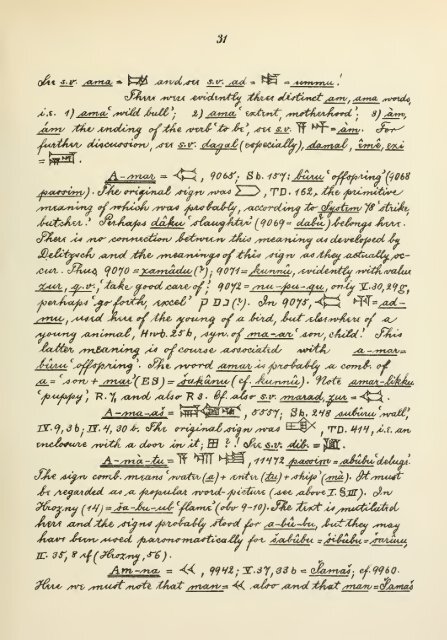 31
See s.v. ama = 𒂼 and see s.v. ad = 𒀜 = ummu.
There were evidently three distinct am, ama words,
i.e. 1) ama 'wild bull'; 2) ama 'extent, motherhood'; 3) àm,
ám the ending of the verb 'to be', see s.v. 𒀀𒀭 = àm. For
further discussion, see s.v. dagal (especially), damal,
A-mar = 𒀫, 9068; Sb. 157: bûru 'offspring' (9068
passim). The original sign was TD. 162, the primitive
meaning of which was probably, according to System 78 'strike,
butcher.' Perhaps dâku 'slaughter' (9069 = dabû) belongs here.
There is no connection between this meaning as developed by
Delitzsch and the meanings of this sign as they actually oc-
cur. Thus 9070 = zamâdu (?); 9071 = kunnû, evidently with value
zur, q.v., 'take good care of'; 9072 = nu-pu-qu, only V. 30, 29 g,
perhaps 'go forth, excel' (?). In 9075, = ad-
mu, used here of the young of a bird, but elsewhere of a
young animal, Hwb. 25 b, syn. of ma-ar 'son, child.' This
latter meaning is of course associated with a-mar =
bûru 'offspring'. The word amar is probably a comb. of
a = 'son + mar' (ES) = šakânu (cf. kunnû). Note amar-likku
'puppy', R. 7, and also R 3. Cf. also s.v. marad, zur = 𒀫.
A-ma-aš = 5557; Sb. 248 subûru 'wall,'
IV. 9, 3 b; IV. 4, 30 b. The original sign was TD. 414, i.e. an
enclosure with a door in it, ? See s.v. dib =
A-mà-tu = 11472 passim = abûbu 'deluge'.
The sign comb. means 'water (a) + enter (tu) + ship' (mà). It must
be regarded as a popular word-picture (see above I. § III). In
Hrozny (14) = ša-bu-ub 'flame' (obv. 9-10). The text is mutilated
here and the signs probably stood for a-bu-bu, but they may
have been used paronomastically for šabûbu = šibûbu = šarûru,
II. 35, 8 ef (Hrozny, 56).
Am-na = 𒌋𒌋, 9942; V. 37, 33 b = Šamaš; cf. 9960.
Here we must note that man = 𒌋𒌋 also and that man = Šamaš